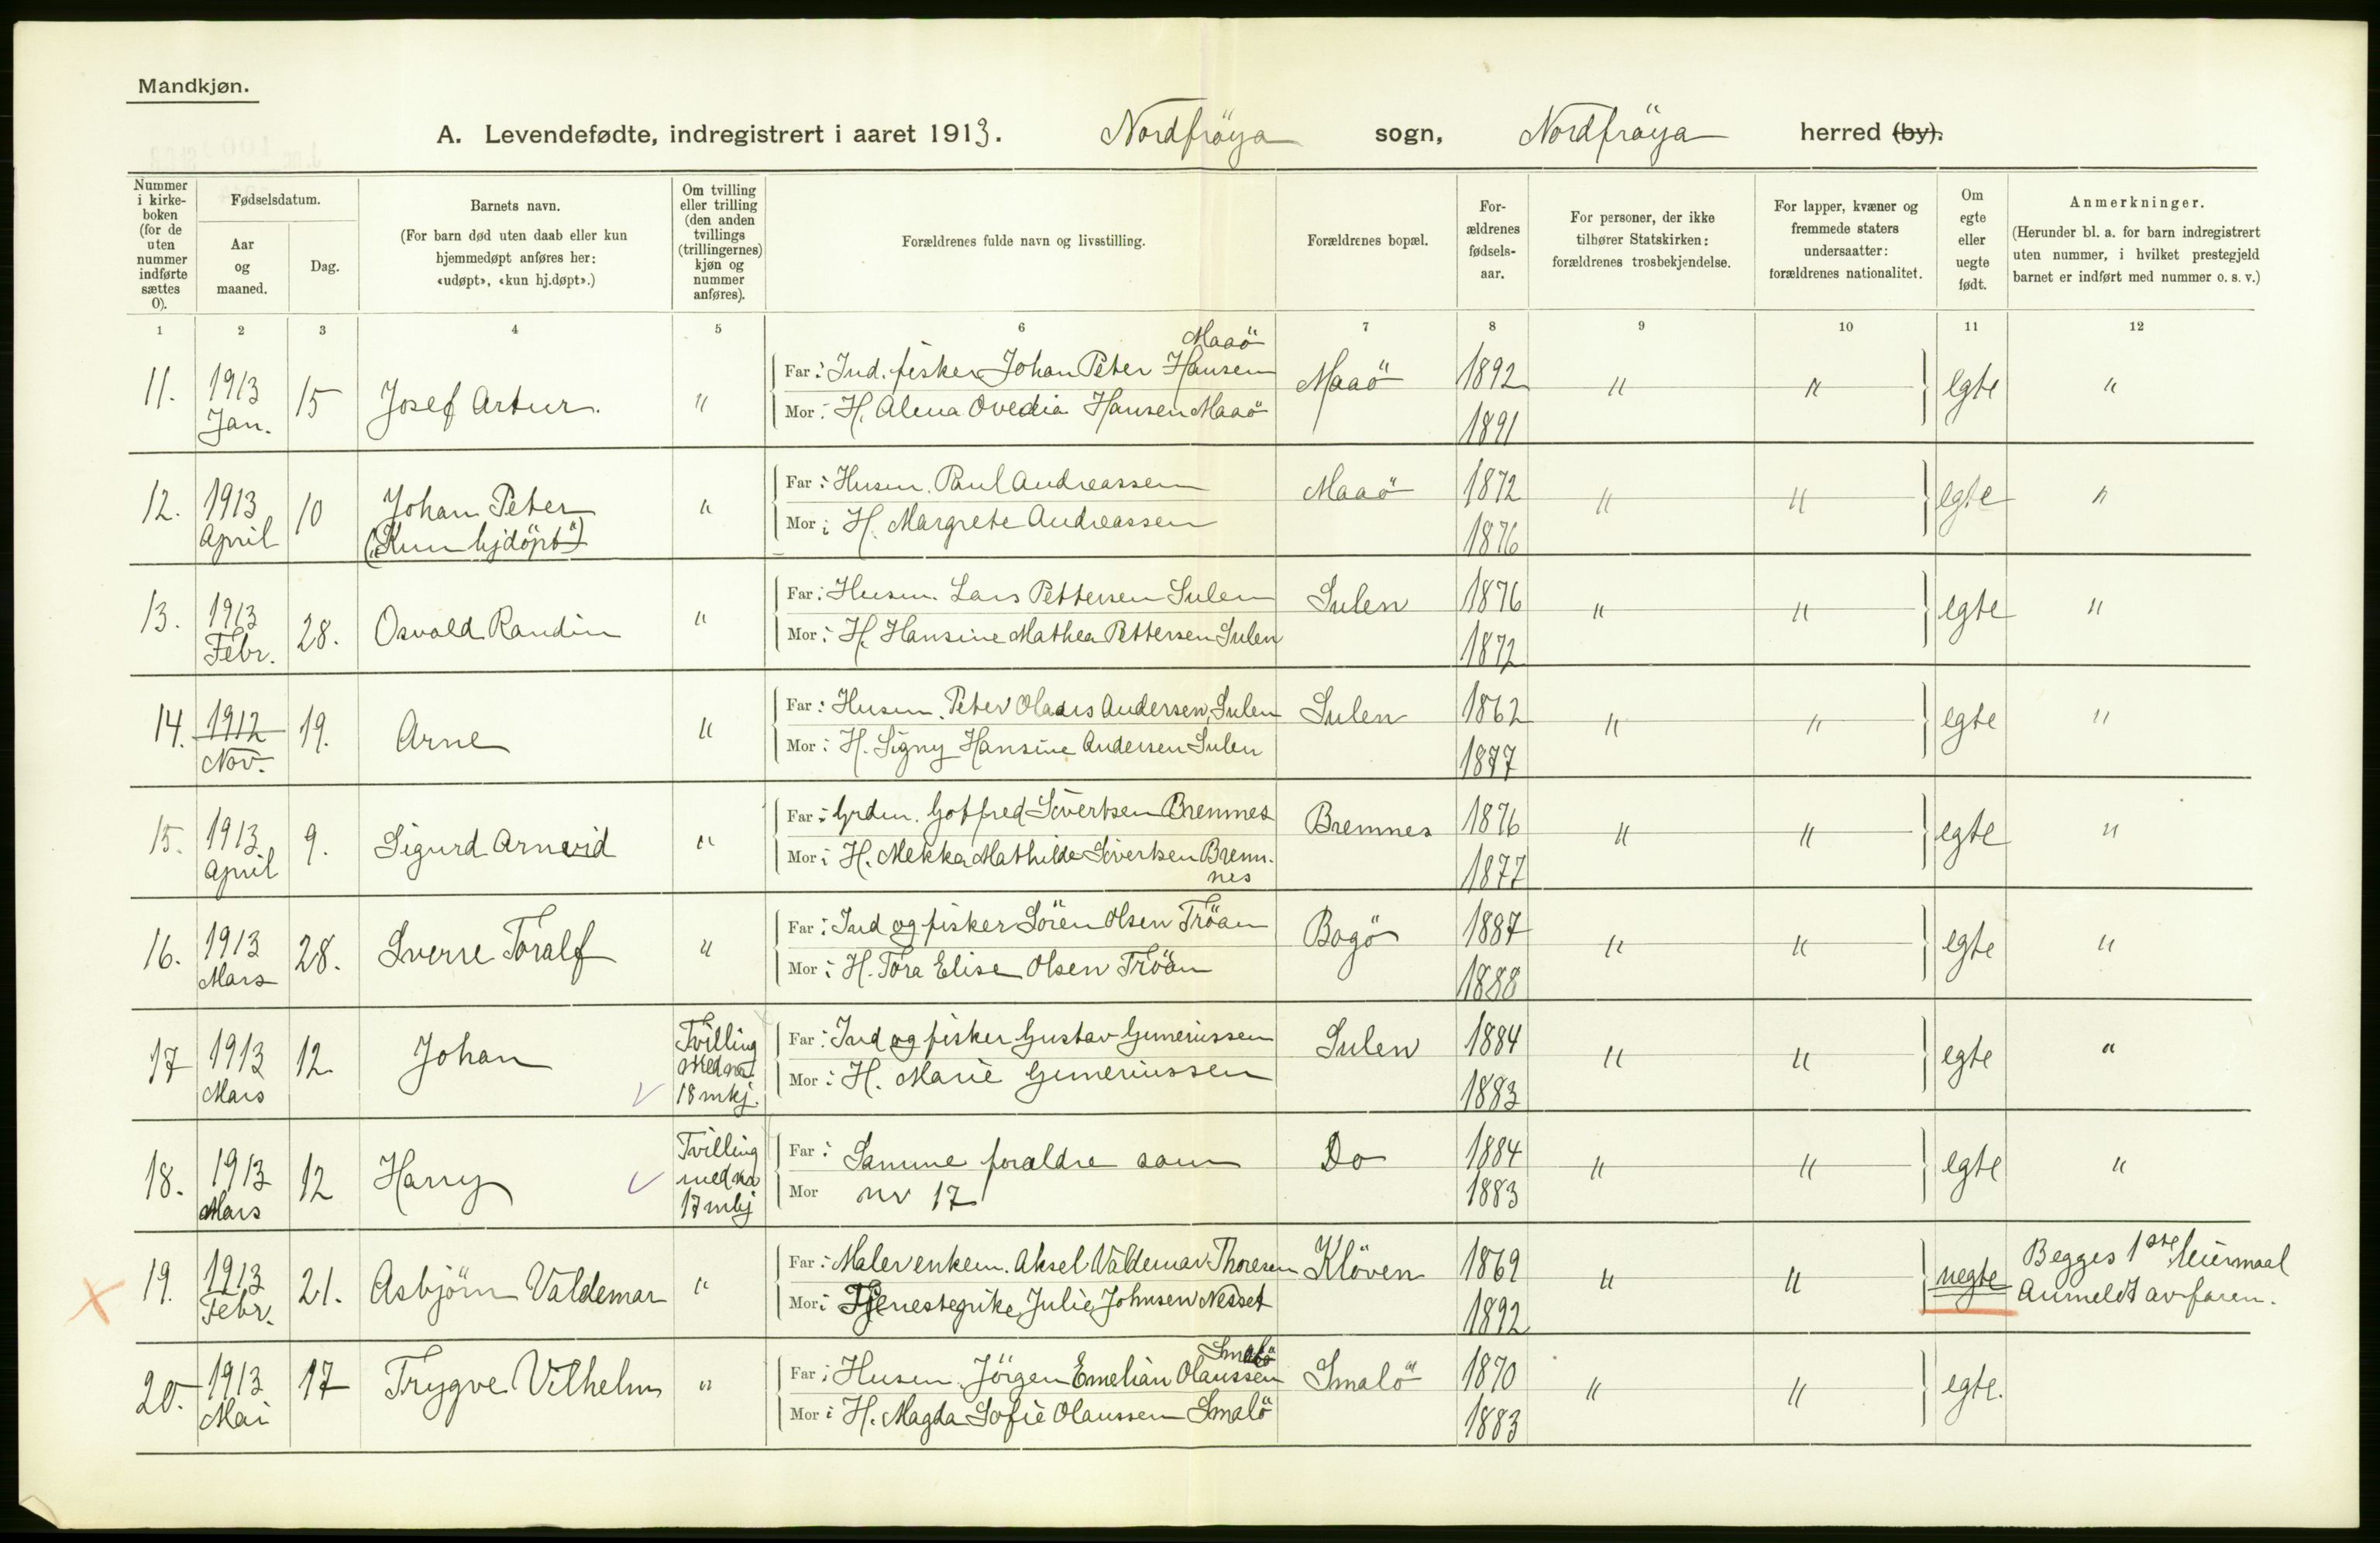 Mandkjøn.
A. Levendefødte, indregistrert i aaret 1913. Nordfröya sogn, Nordfröya herred (by).
Nummer i kirke-boken (for de uten nummer indførte sættes 0).
Fødselsdatum.
Aar og maaned.
Dag.
Barnets navn.
(For barn død uten daab eller kun hjemmedøpt anføres her: «udøpt», «kun hj.døpt».)
Om tvilling eller trilling (den anden tvillings (trillingernes) kjøn og nummer anføres).
Forældrenes fulde navn og livsstilling.
Forældrenes bopæl.
For-ældrenes fødsels-aar.
For personer, der ikke tilhører Statskirken: forældrenes trosbekjendelse.
For lapper, kvæner og fremmede staters undersaatter: forældrenes nationalitet.
Om egte eller uegte født.
Anmerkninger.
(Herunder bl. a. for barn indregistrert uten nummer, i hvilket prestegjeld barnet er indført med nummer o. s. v.)
1 2 3 4 5 6 7 8 9 10 11 12
11. 1913 Jan. 15 Josef Artur. "
Far: Ind. fisker Johan Peter Hansen Maaö
Mor: H. Alena Ovedia Hansen Maaö
Maaö 1892 1891 " " egte "
12. 1913 April 10 Johan Peter ("Kun hjdöpt") "
Far: Husm. Paul Andreassen
Mor: H. Margrete Andreassen
Maaö 1872 1876 " " egte "
13. 1913 Febr. 28. Osvald Randin "
Far: Husm. Lars Pettersen Sulen
Mor: H. Hansine Mathea Pettersen Sulen
Sulen 1876 1872 " " egte "
14. 1912 Nov. 19. Arne "
Far: Husm. Peter Olaais Andersen Sulen
Mor: H. Signy Hansine Andersen Sulen
Sulen 1862 1877 " " egte "
15. 1913 April 9. Sigurd Arnvid "
Far: Grdm. Gotfred Sivertsen Bremnes
Mor: H. Mekka Mathilde Sivertsen Bremnes
Bremnes 1876 1877 " " egte "
16. 1913 Mars 28. Sverre Toralf "
Far: Ind og fisker Sören Olsen Tröan
Mor: H. Tora Elise Olsen Tröan
Bogö 1887 1888 " " egte "
17 1913 Mars 12. Johan Tvilling med no 18 mkj.
Far: Ind og fisker Gustav Gumeriussen
Mor: H. Marie Gumeriussen
Sulen 1884 1883 " " egte "
18. 1913 Mars 12 Harry Tvilling med no 17 mkj
Far: Samme foraldre som
Mor nr 17
Do 1884 1883 " " egte "
19. 1913 Febr. 21. Asbjörn Valdemar "
Far: Maler enkem. Aksel Valdemar Thoresen
Mor: Tjenestepike Julie Johnsen Nesset
Klöven 1869 1892 " " uegte Begges 1ste leiermaal
Anmeldt av faren.
20. 1913 Mai 17 Trygve Vilhelm "
Far: Husm. Jörgen Emelian Olaussen Smalö
Mor: H. Magda Sofie Olaussen Smalö
Smalö 1870 1883 " " egte.